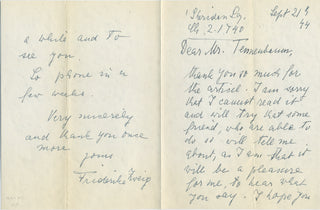 1 Sheridan Sq.
Ch 2-1740
Sept 21st
44
Dear Mr. Tennenbaum,
thank you so much for
the article. I am sorry
that I cannot read it
and will try that some
friend, who are able to
do it will tell me
about, as I am that it
will be a pleasure
for me, to hear what
you say. I hope you
a while and to
see you.
So phone in a
few weeks.
Very sincerely
and thank you once
more
yours
Friderike Zweig